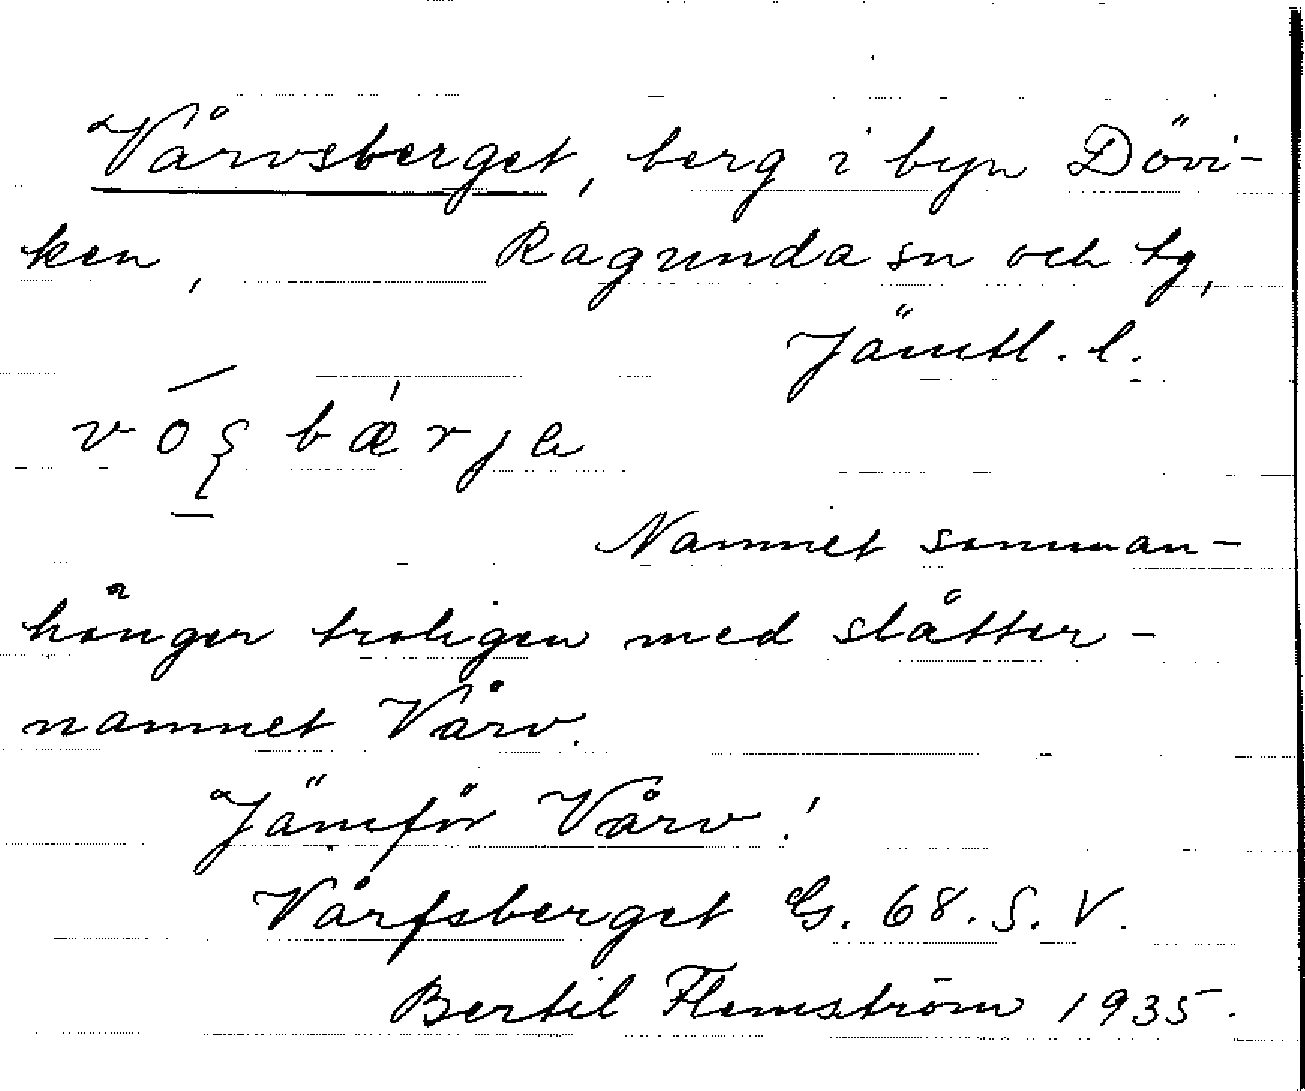 Vårvsberget, berg i byn Dövi-
ken, Ragunda sn och tg,
Jämtl. l.
vó̱ʂ bǽrjɐ
Namnet samman-
hänger troligen med slåtter-
namnet Vårv.
Jämför Vårv!
Vårfsberget G. 68. S. V.
Bertil Flemström 1935.